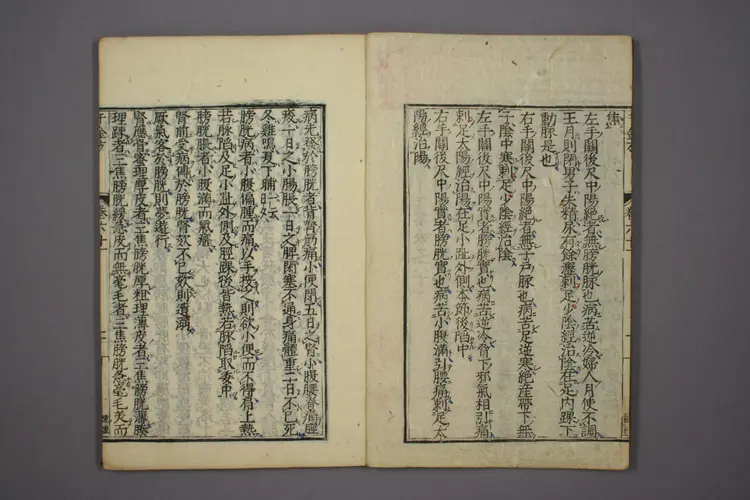 焦
左手關後尺中陽絕者無膀胱脉也病苦逆冷婦人月使不調
王月則閉男子失精尿有餘瀝刺足少陰經治陰在足內踝下
動脉是也
右手關後尺中陽絕者無子戶脉也病苦足逆寒絕産帶下無
子陰中寒刺足少陰經治陰
左手關後尺中陽實者膀胱實也病苦逆冷脅下邪氣相引痛
刺足太陽經治陽在足小趾外側本節後陷中
右手關後尺中陽實者膀胱實也病苦小腹滿引腰痛刺足太
陽經治陽
病先發於膀胱者背膂筋痛小便閉五日之腎小腹腰脊痛脛
痠一日之小腸脹一日之脾閉塞不通身痛體重二日不已死
冬雞鳴夏下晡一云日夕
膀胱病者小腹偏腫而痛以手按之則欲小便而不得肩上熱
若脉陷及足小趾外側及脛踝後皆熱若脉陷取委中
膀胱脹者小腹滿而氣癃
腎前受病傳於膀胱腎欬不已欬則遺溺
厥氣客於膀胱則夢遊行
腎應骨密理厚皮者三焦膀胱厚粗理薄皮者三焦膀胱薄腠
理踈者三焦膀胱緩急皮而無毫毛者三焦膀胱急毫毛美而
千金方
卷六十